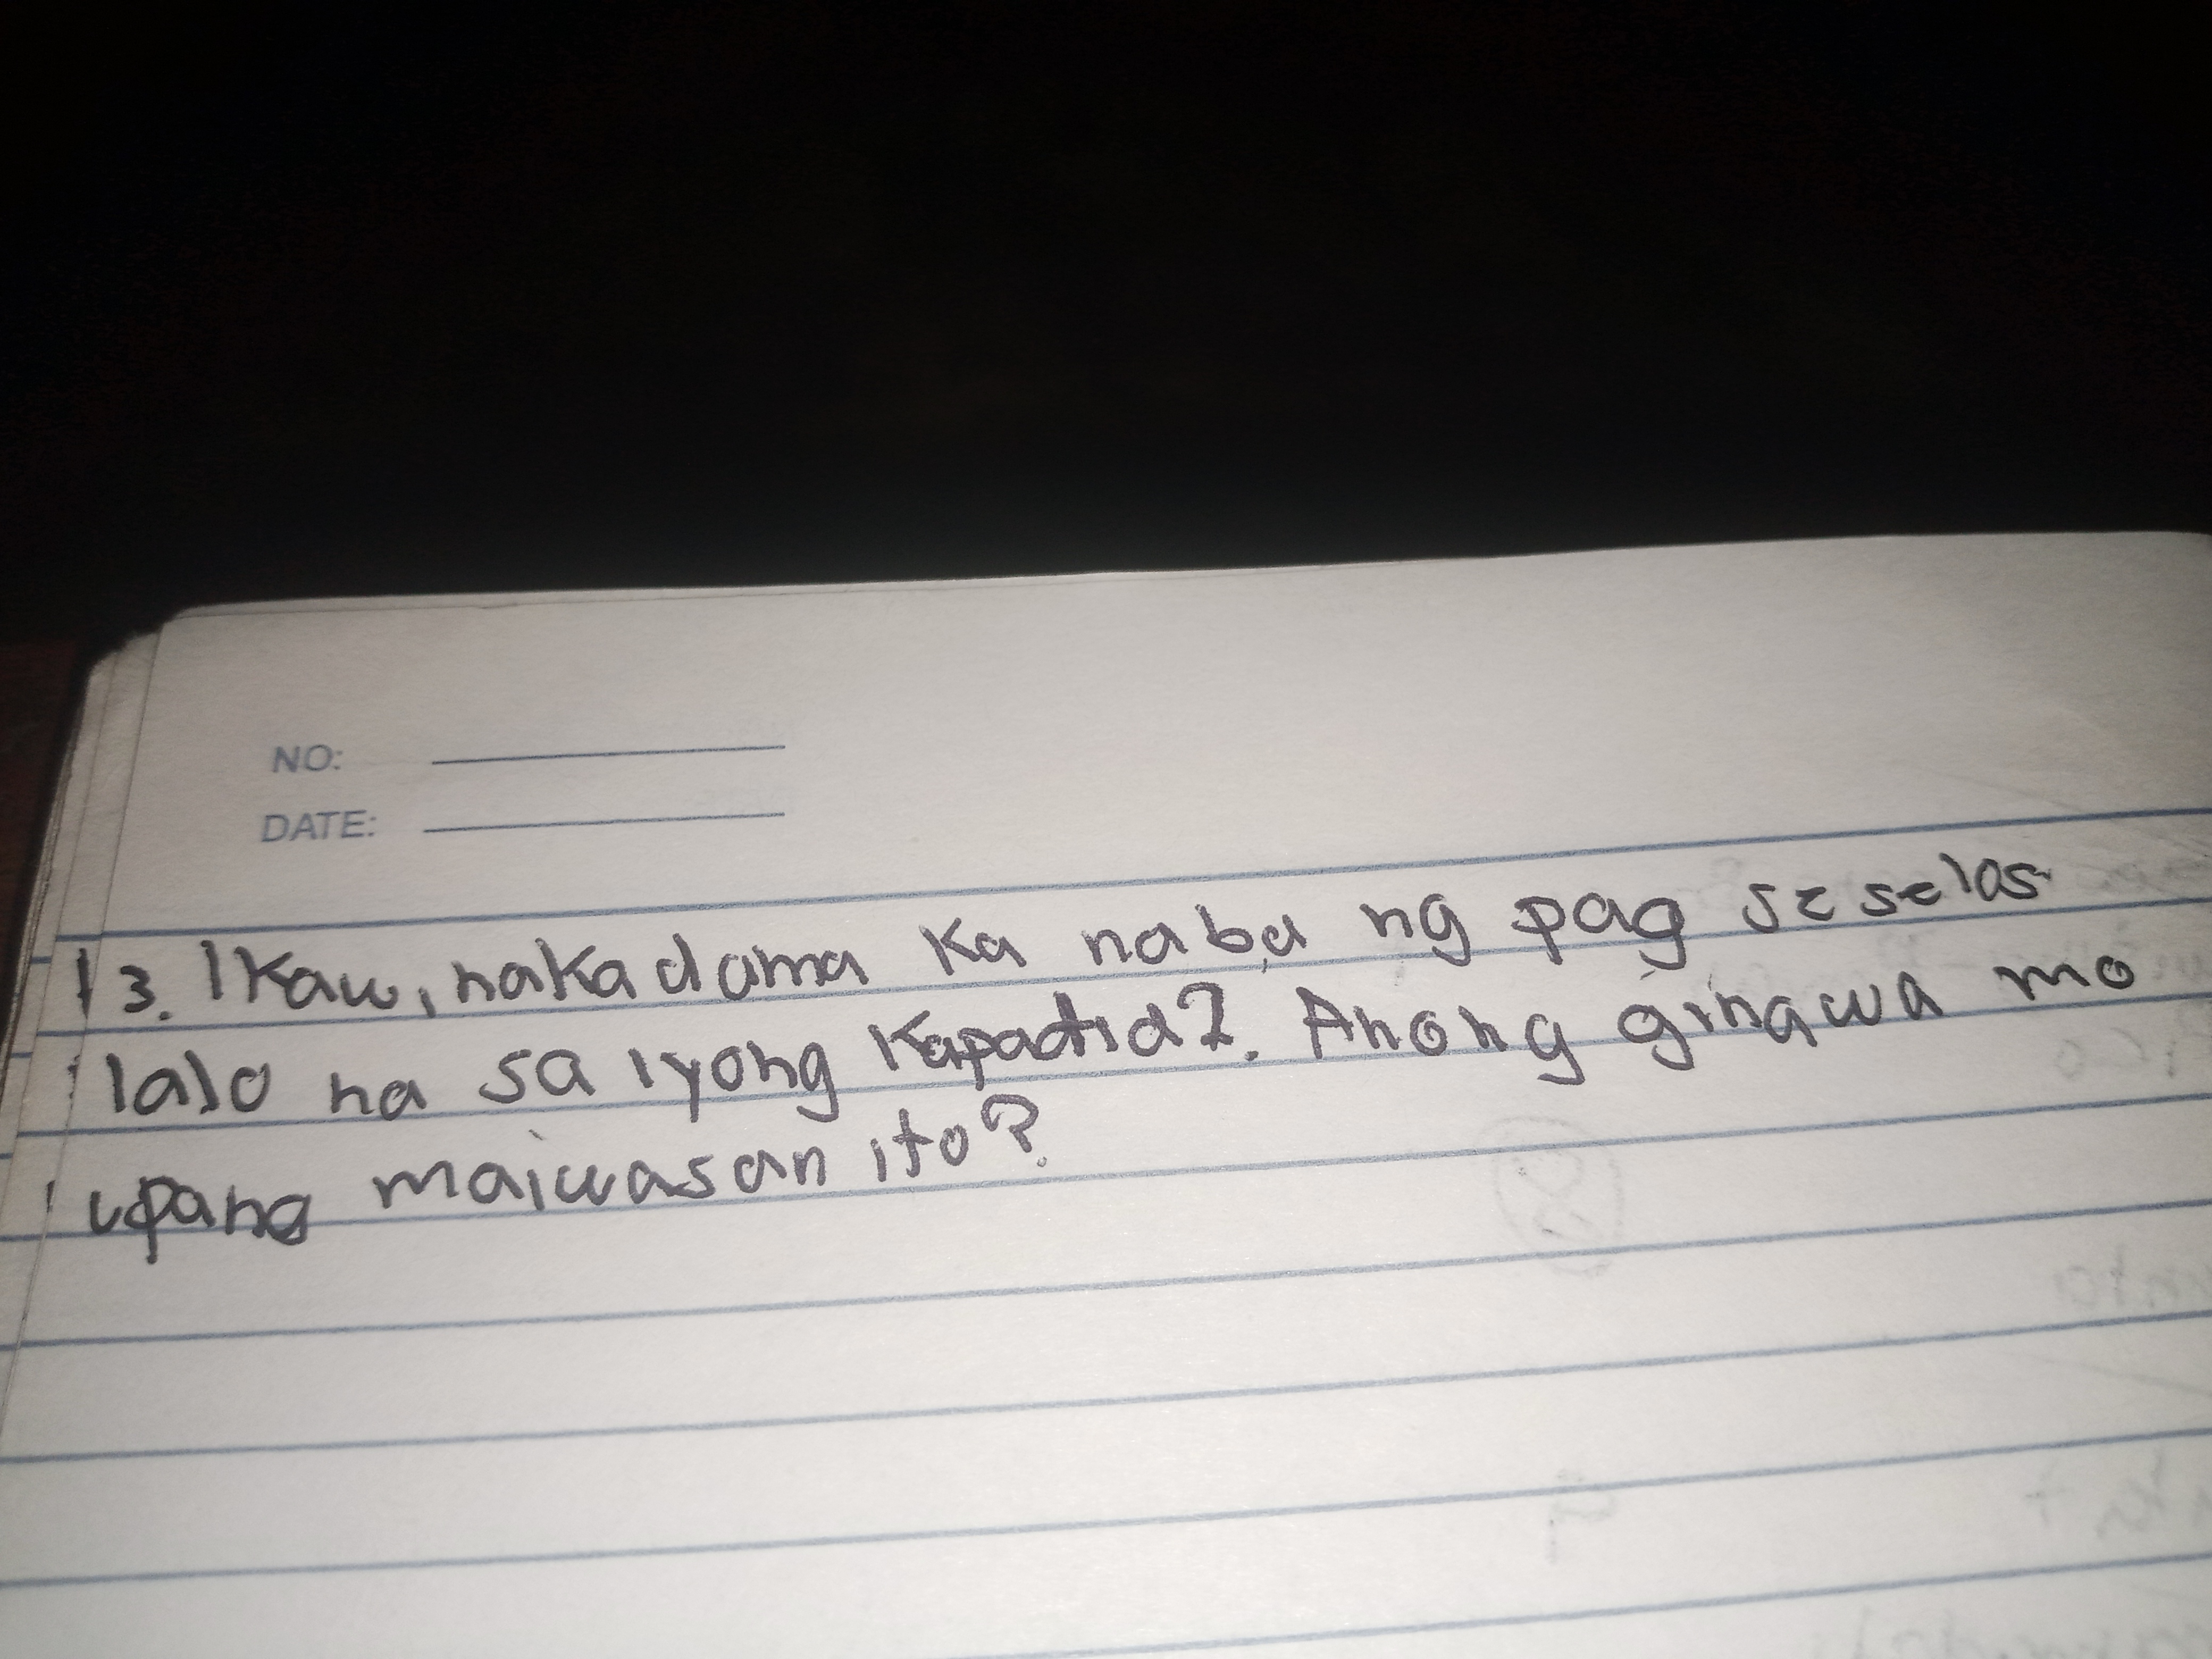 NO:
DATE:
13. Ikaw, nakadama ka naba ng pag seselos
lalo na sa iyong kapatid?. Anong ginawa mo
upang maiwasan ito?